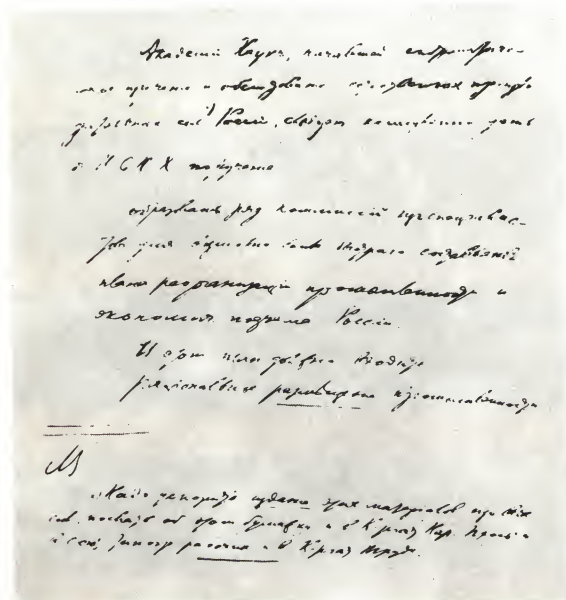 Академии Наук, начавшей систематиче-
ское изучение и обследование естественных произво-
дительных сил 1) России, следует немедленно дать
от ВСНХ поручение
образовать ряд комиссий из специалис-
тов для возможно более быстрого составления
плана реорганизации промышленности и
экономич. подъема России.
В этот план должно входить
рациональное размещение промышленности
Надо ускорить издание этих материалов изо всех
сил, послать об этом бумажку и в К-риат Нар. Просв. и
в союз типогр. рабочих и в К-риат Труда.